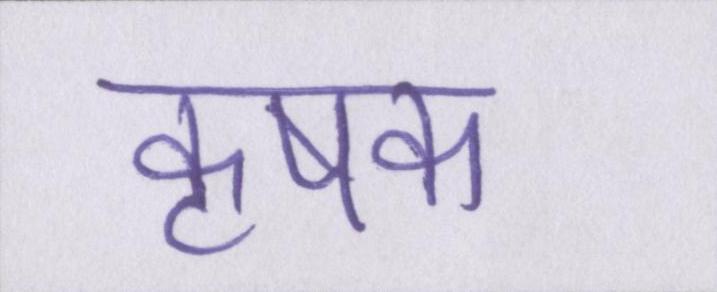 कृषक